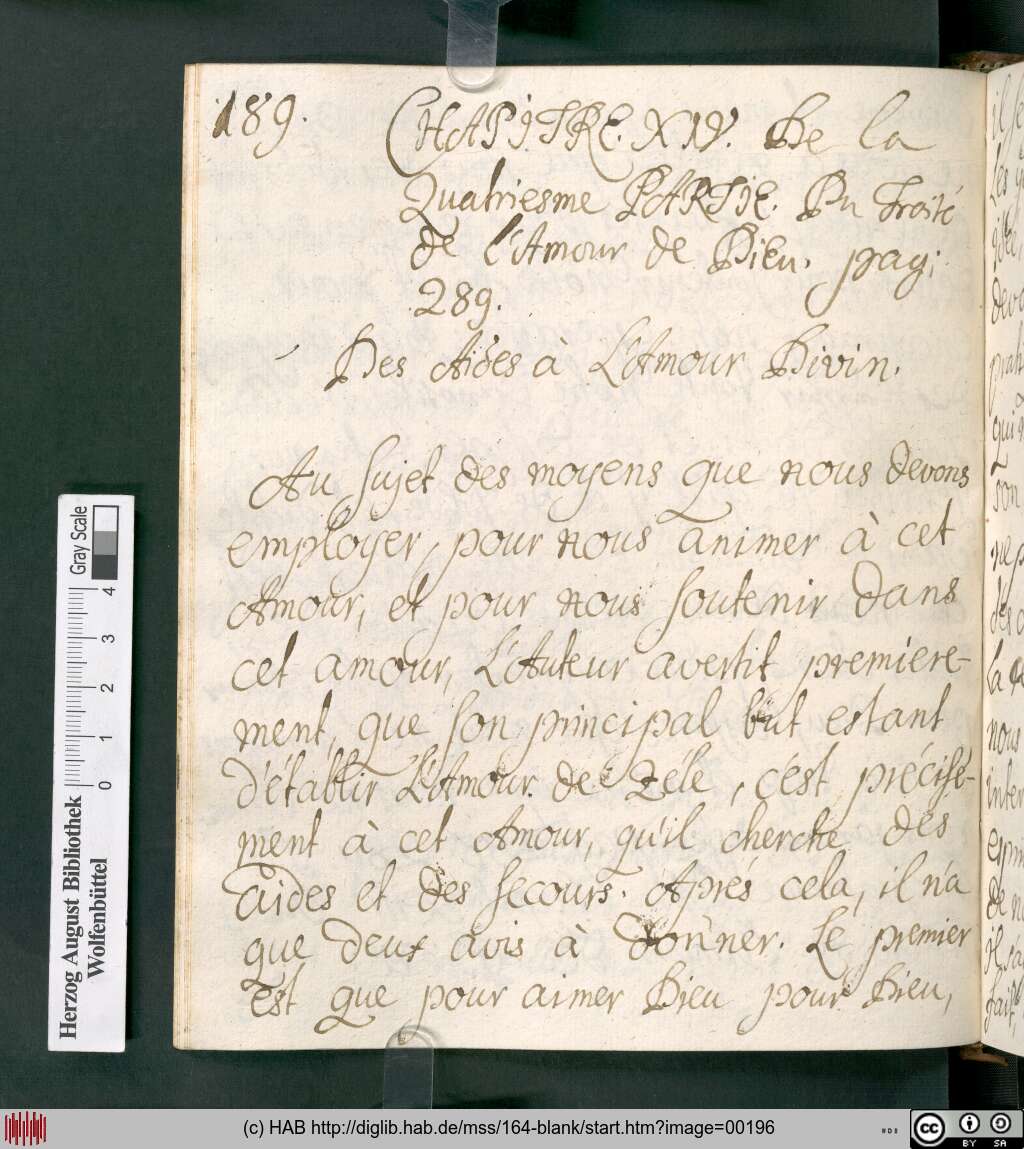 189.
CHAPITRE. XIV. De la
Quatriesme PARTIE. Du Traité
de l'Amour de Dieu. pag:
289.
Des Aides à L'Amour Divin.
Au sujet des moyens que nous devons
employer, pour nous animer à cet
Amour, et pour nous soutenir dans
cet amour, L'Auteur avertit premiere-
ment, que son principal but estant
d'établir L'Amour de Zéle, c'est précisé-
ment à cet Amour, qu'il cherche des
aides et des secours. Aprés cela, il n'a
que deux avis à donner. Le premier
est que pour aimer Dieu pour Dieu,
Gray Scale
0 1 2 3 4
Herzog August Bibliothek
Wolfenbüttel
(c) HAB http://diglib.hab.de/mss/164-blank/start.htm?image=00196
cc BY SA